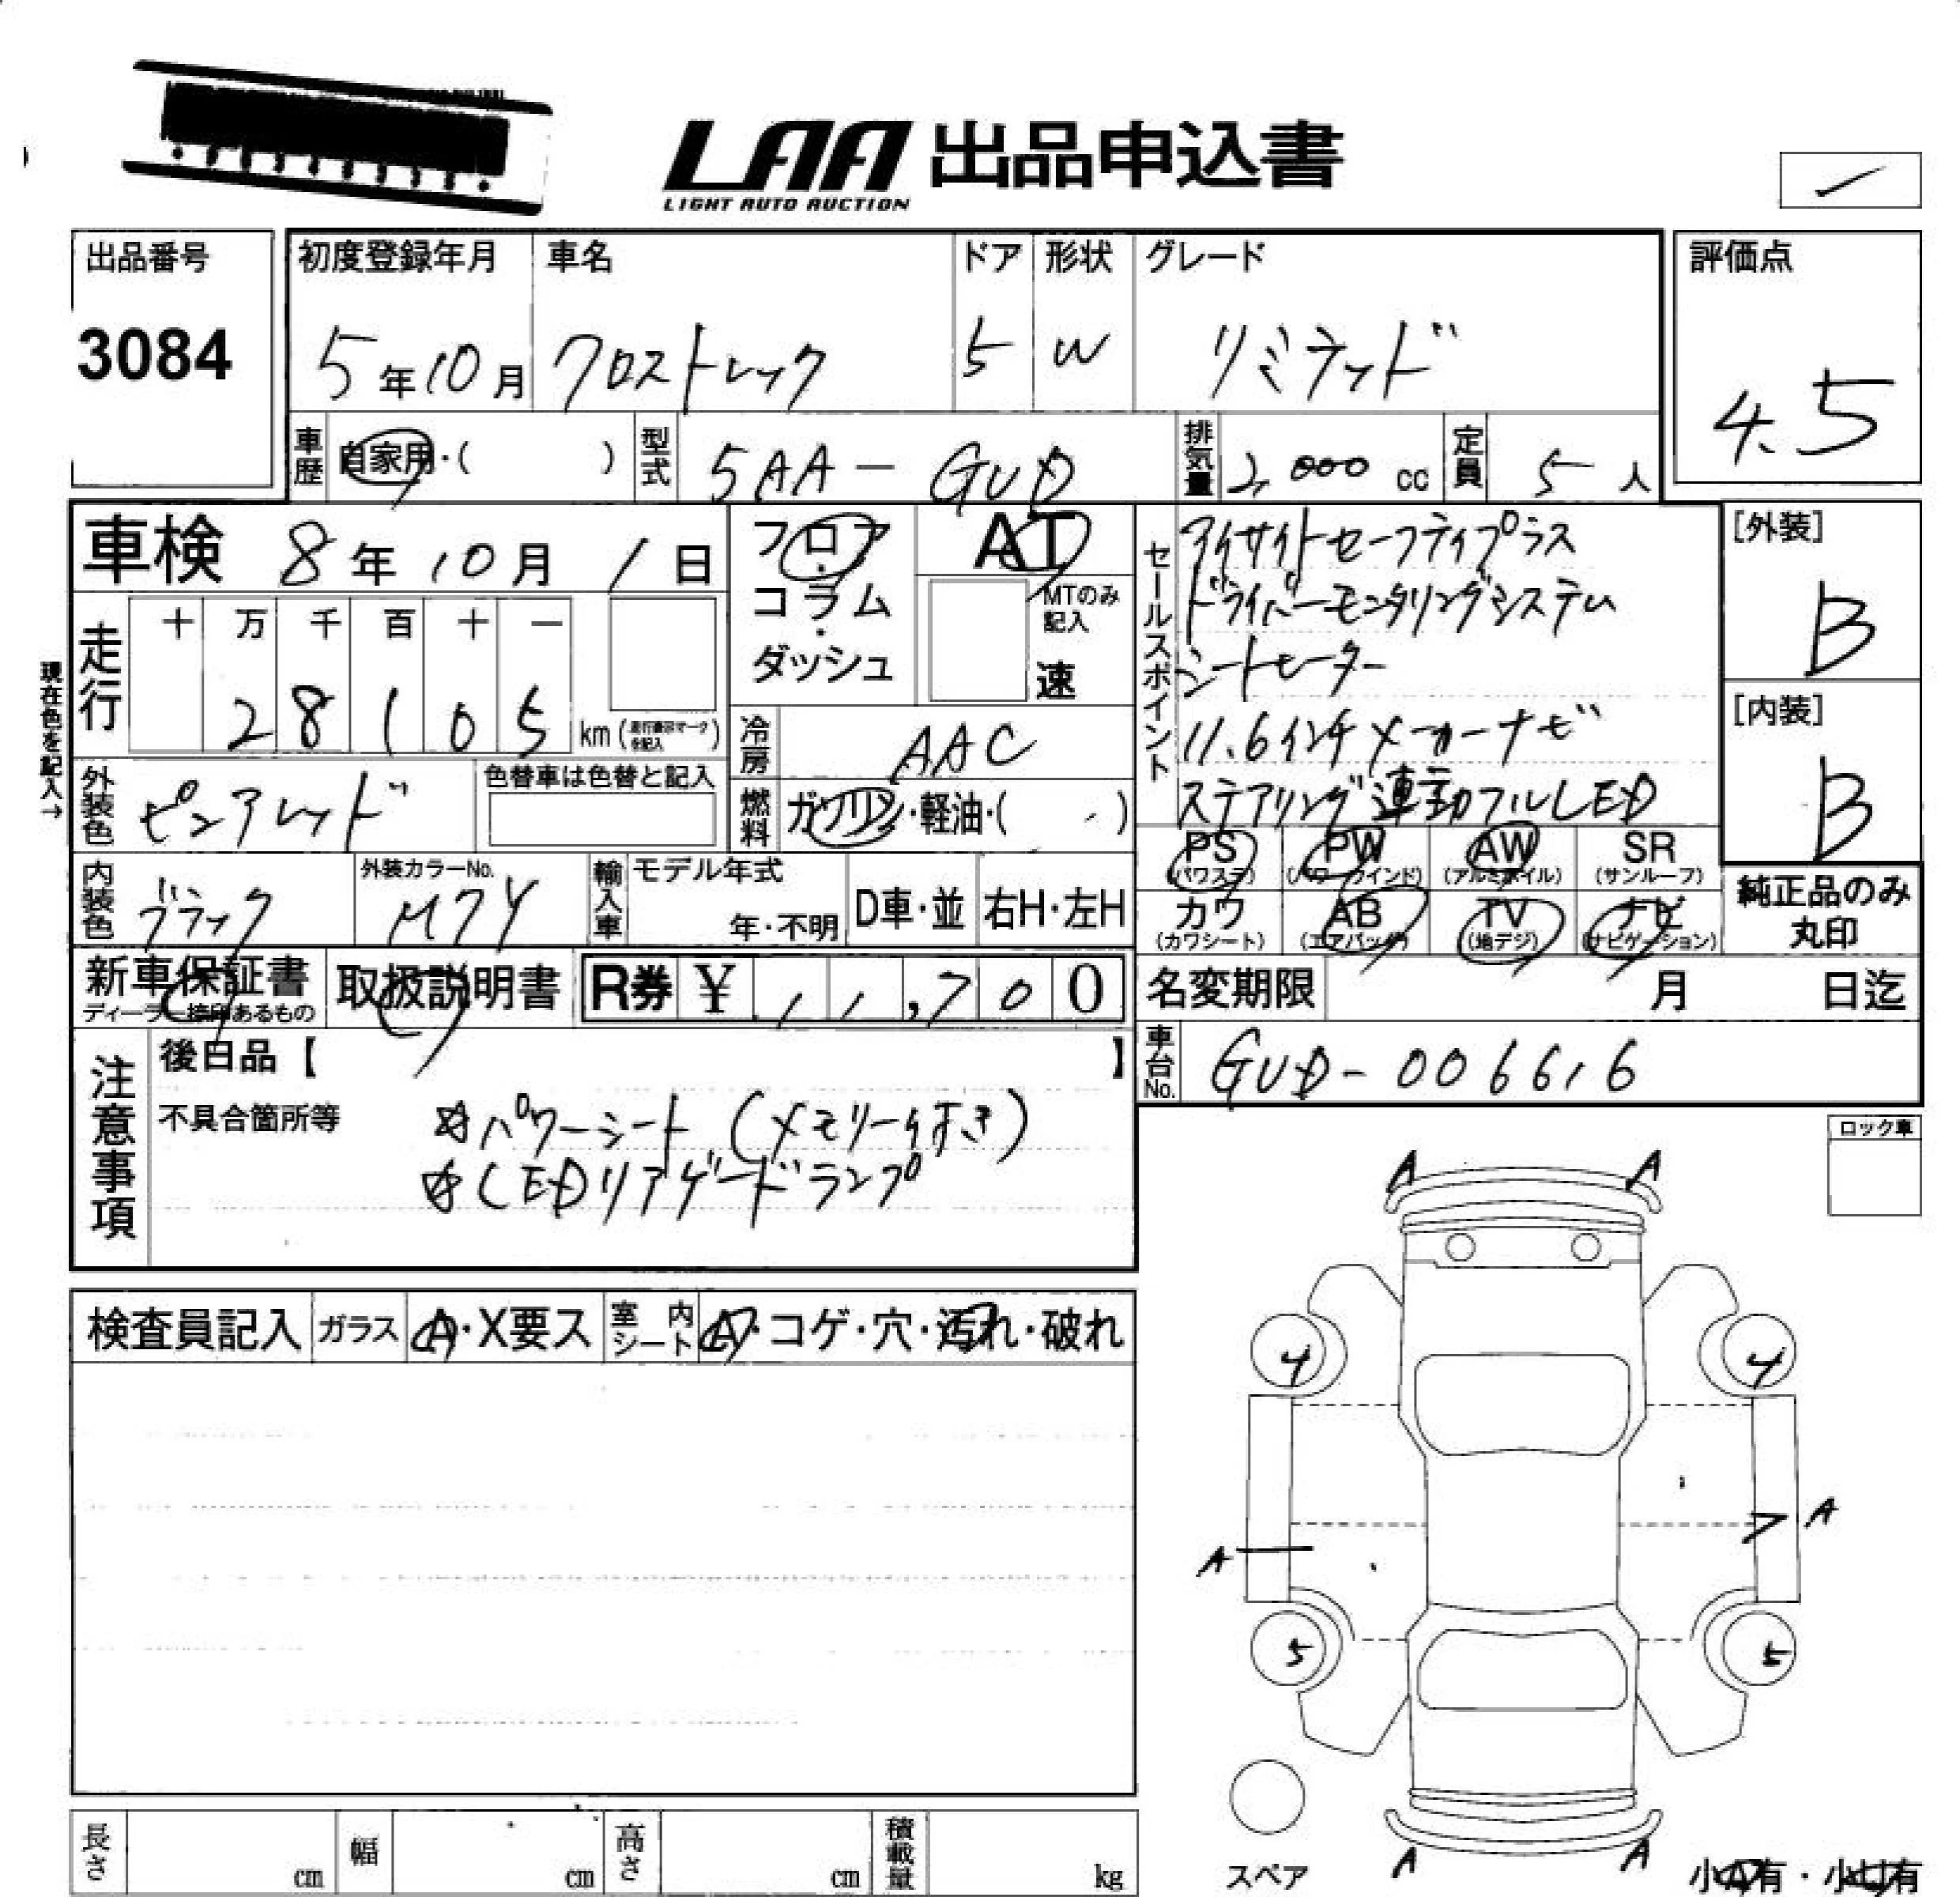 LAA 出品申込書
LIGHT AUTO AUCTION
出品番号
3084
初度登録年月
5年10月
車名
クロストレック
ドア
5
形状
W
グレード
リミテッド
評価点
4.5
車歴
自家用・( )
型式
5AA-GUD
排気量
2,000 cc
定員
5人
車検 8年10月1日
フロア・コラム・ダッシュ
AT
MTのみ記入
速
セールスポイント
アイサイトセーフティプラス
ドライバーモニタリングシステム
シートヒーター
11.6インチメーカーナビ
ステアリング連動フルLED
[外装]
B
[内装]
B
現在色を記入→
走行
十 万 千 百 十 一
2 8 1 0 5 km (走行表示マークを記入)
冷房
AAC
外装色
ピュアレッド
色替車は色替と記入
燃料
ガソリン・軽油・( )
PS (パワステ)
PW (パワーウインド)
AW (アルミホイル)
SR (サンルーフ)
カワ (カワシート)
AB (エアバック)
TV (地デジ)
ナビ (ナビゲーション)
純正品のみ丸印
内装色
ブラック
外装カラーNo.
M7Y
輸入車
モデル年式
年・不明
D車・並
右H・左H
新車保証書
ディーラー捺印あるもの
取扱説明書
R券 ¥ 11,700
名変期限 月 日迄
車台No.
GUD-006616
注意事項
後日品【 】
不具合箇所等
☆パワーシート(メモリー付き)
☆LEDリアゲートランプ
ロック車
検査員記入
ガラス
A・X要ス
室内シート
A・コゲ・穴・汚れ・破れ
A A
4 4
A A
5 5
A A
スペア
小A有・小U有
長さ cm
幅 cm
高さ cm
積載量 kg